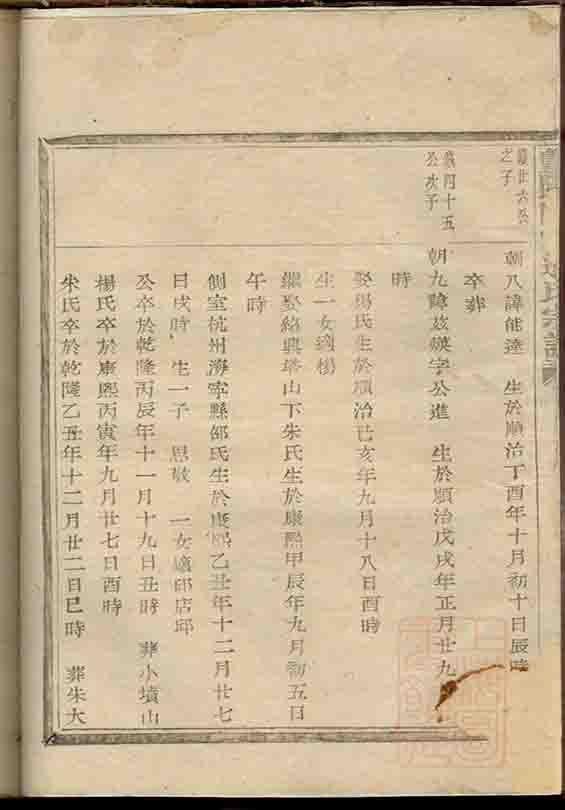 義廿六公
之子
朝八諱能達　生於順治丁酉年十月初十日辰時
卒葬
義四十五
公次子
朝九諱茲　字公進　生於順治戊戌年正月廿九
時
娶楊氏生於順治己亥年九月十八日酉時
生一女適楊
繼娶紹興塔山下朱氏生於康熙甲辰年九月初五日
午時
側室杭州海寧縣邵氏生於康熙乙丑年十二月廿七
日戌時　生一子　思敬　一女適邱店邱
公卒於乾隆丙辰年十一月十九日丑時　葬小墳山
楊氏卒於康熙丙寅年九月廿七日酉時
朱氏卒於乾隆乙丑年十二月廿二日巳時　葬朱大
氏宗譜